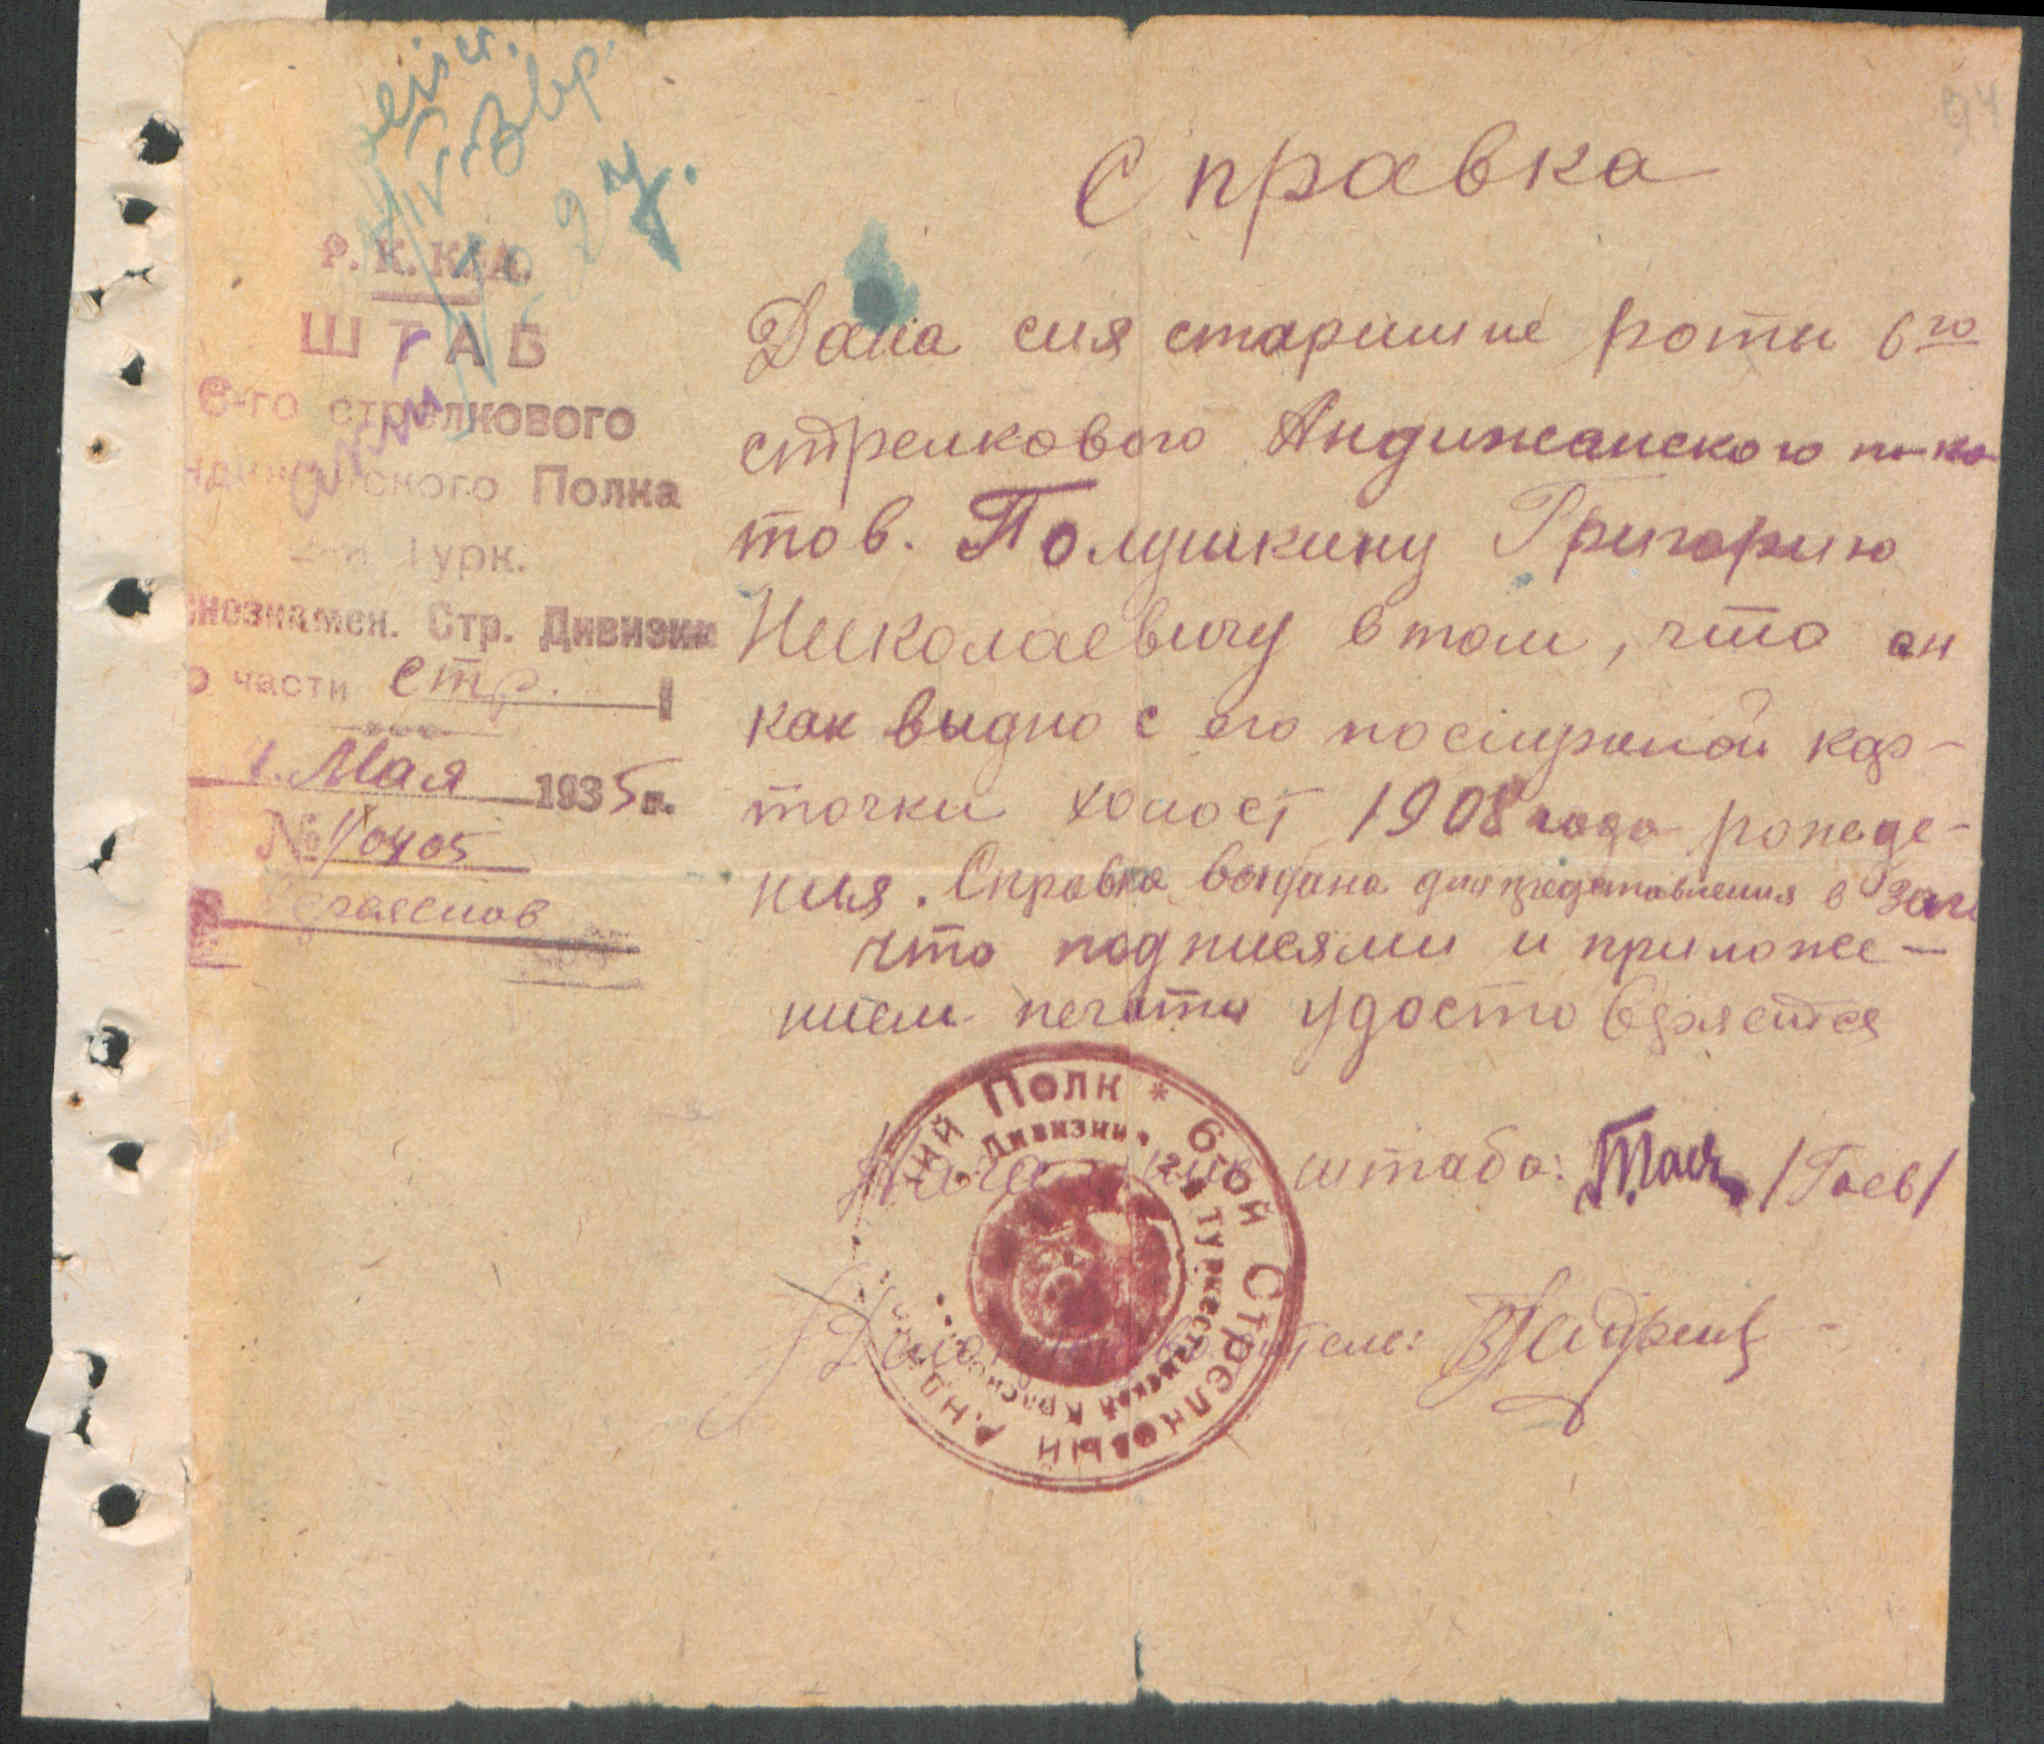 94
Справка
Р.К.К.А.
ШТАБ
6-го стрелкового
ндижанского Полка
2-й Турк.
снознамен. Стр. Дивизии
о части стр.
1. Мая 1935 г.
№ 1/0405
Дана сия старшине роты 6го
стрелкового Андижанского п-ка
тов. Полушкину Григорию
Николаевичу в том, что он
как выдно с его послужной кар-
точки холост 1908 года рожде-
ния. Справка выдана для представления в Загс
что подписями и приложе-
нием печати удостоверяется
Начальник штаба: /Гаев/
Делопроизводитель:
6-ой Стрелковый Андижанский Полк *
2й Туркестанской Красно Дивизии